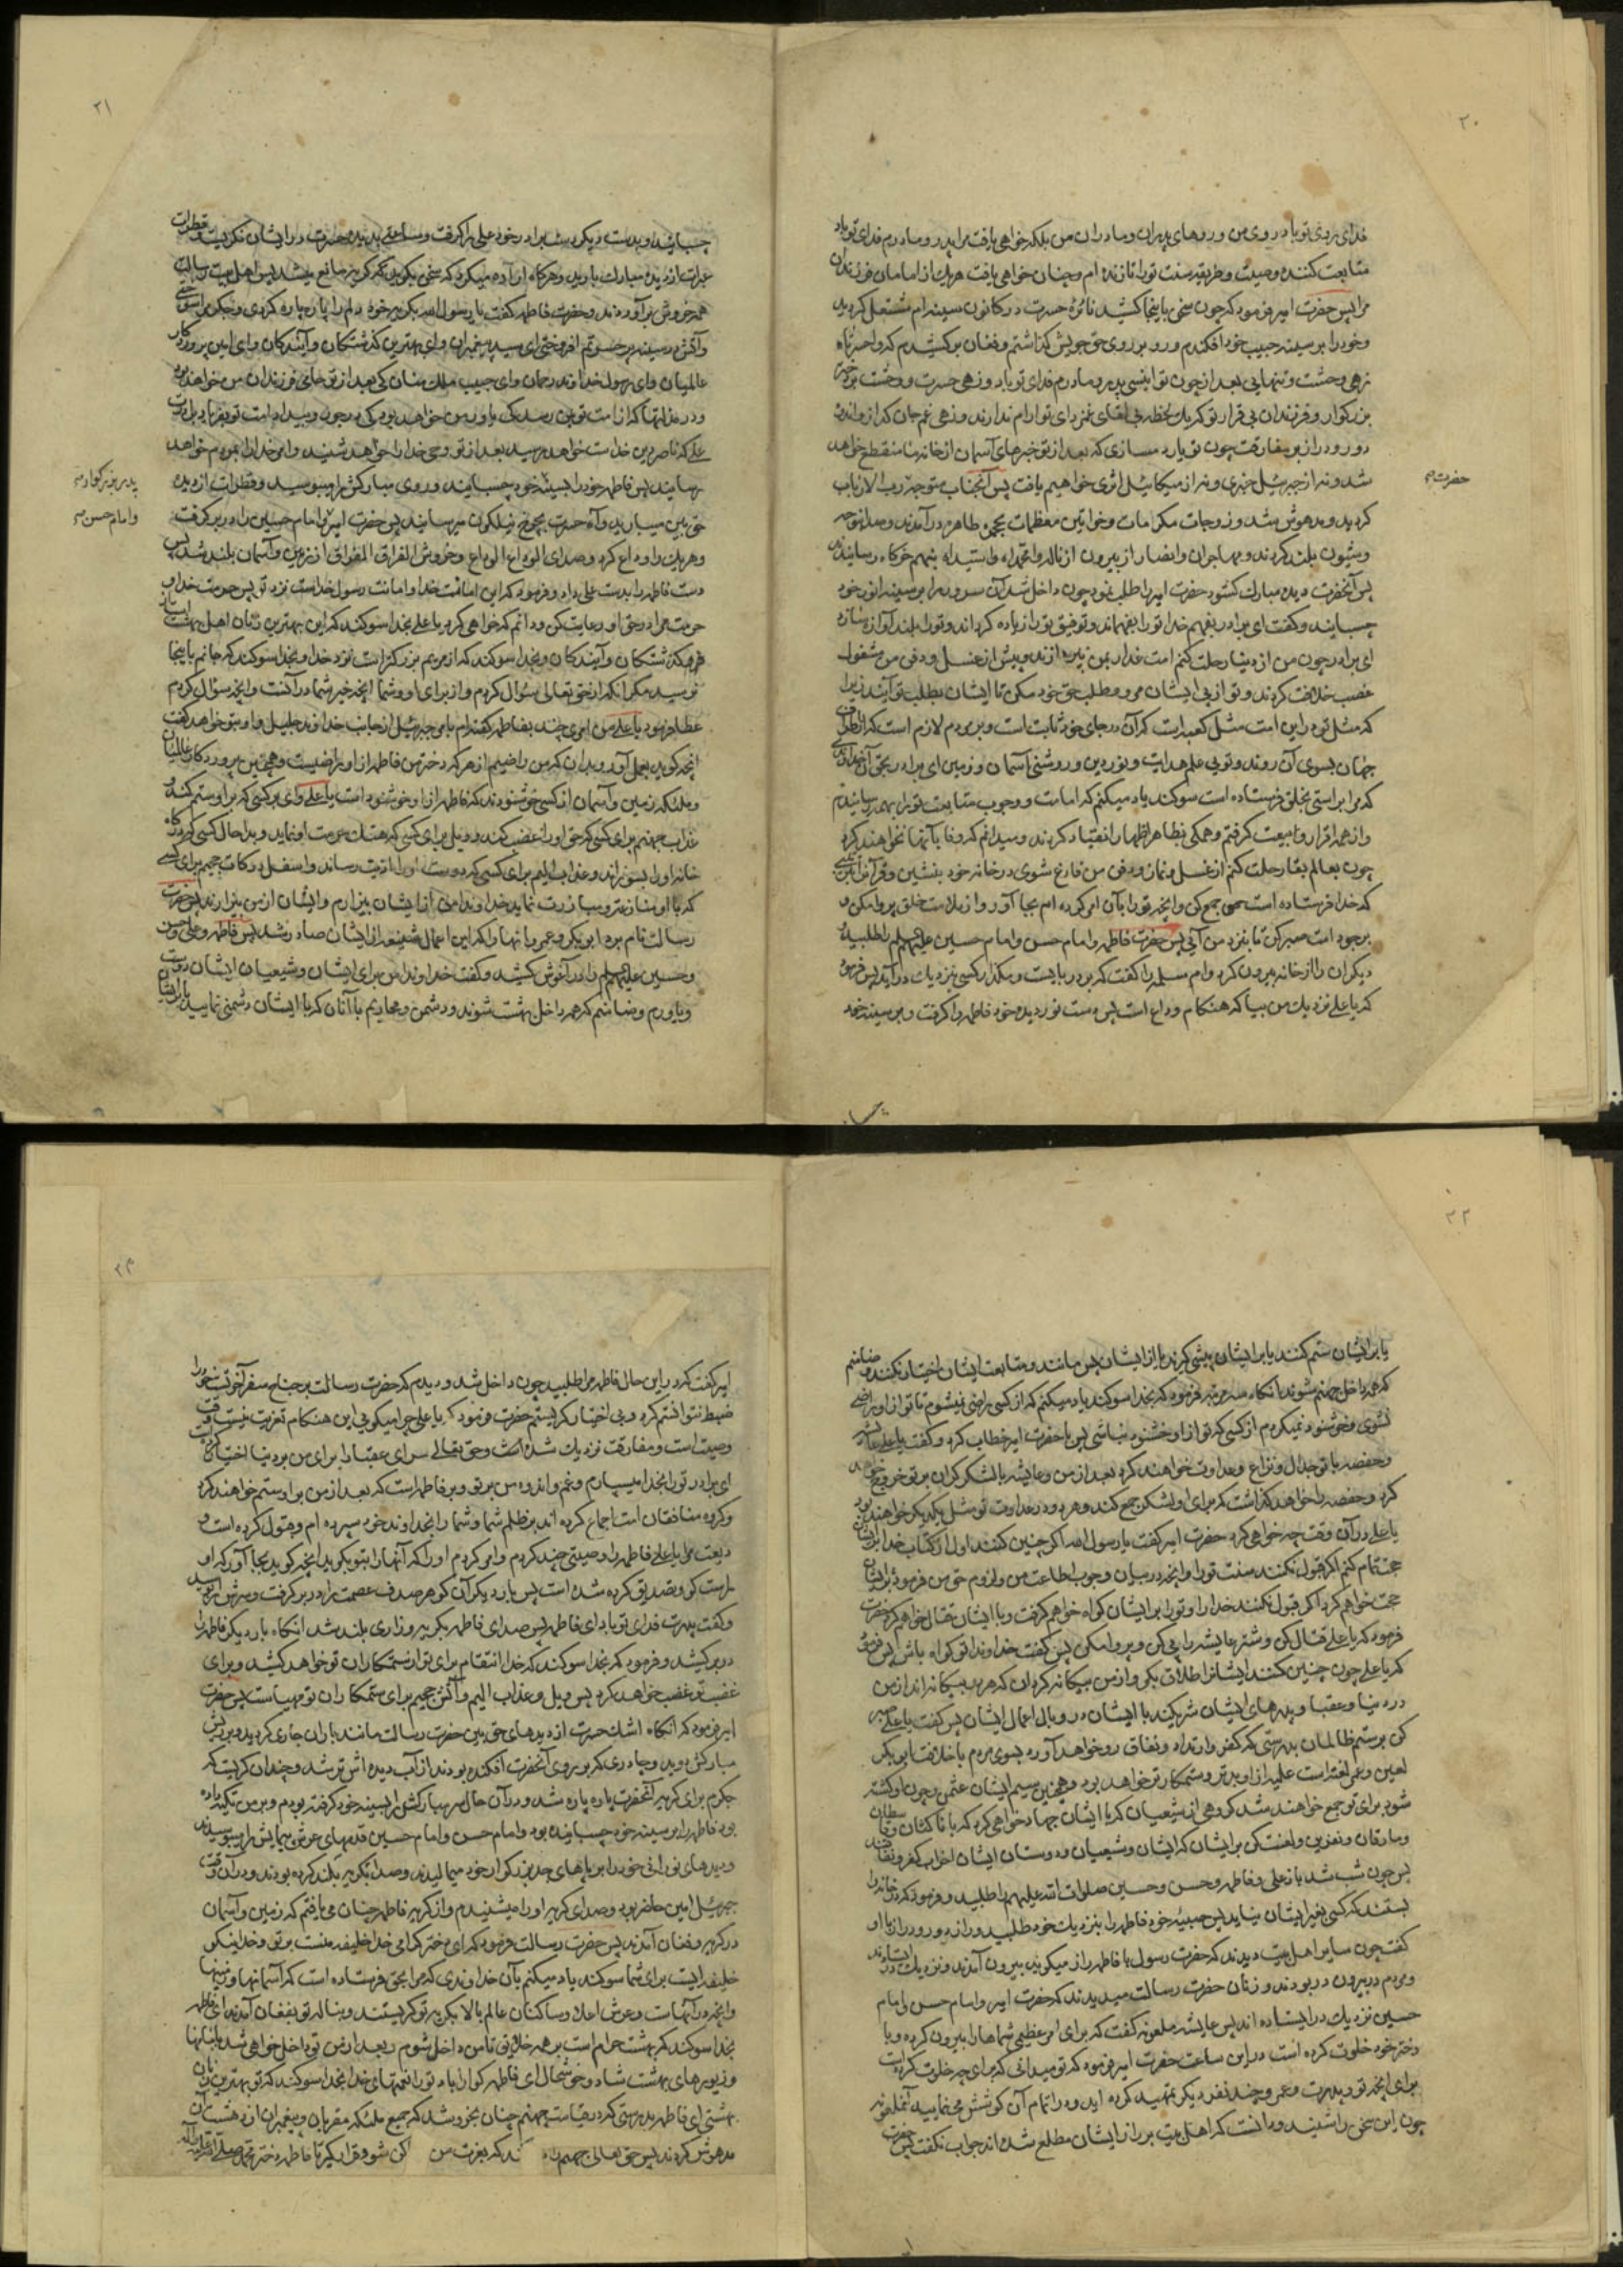 ٢٠
فدای روی تو باد روی من و روهای پدران و مادران من بلکه خواهی یافت مرا پدر و مادرم فدای تو باد
متابعت کننده وصیت و طریقه سنت تو را تا زنده ام و چنان خواهی یافت هر یک از امامان فرزندان
مرا پس حضرت امیر فرمود که چون سخن باینجا کشید نائره حسرت در کانون سینه ام مشتعل گردید
و خود را بر سینه حبیب خود افکندم و رو بر روی حق جویش گذاشتم و فغان برکشیدم که واحسرتاه
زهی وحشت و تنهایی بعد از چون تو انیسی پدر و مادرم فدای تو باد و زهی حسرت و وحشت بر دختر
بزرگوار و فرزندان بی قرار تو که یک لحظه بی لقای غمزدای تو آرام ندارند و زهی غم جان گداز و اندوه
دور و دراز بر مفارقت چون تو یار دمسازی که بعد از تو خبرهای آسمان از خانه ما منقطع خواهد
شد و نه از جبرئیل خبری و نه از میکائیل اثری خواهیم یافت پس آنجناب متوجه رب الارباب
حضرت
گردید و مدهوش شد و زوجات مکرمات و خواتین معظمات بحجره طاهره درآمدند و صدا بنوحه
و شیون بلند کردند و مهاجران و انصار از بیرون از ناله وا محمداه وا سیداه
پس آنحضرت دیده مبارک گشود حضرت امیر را طلب نمود چون داخل شد آن سرور مرا بر سینه انور خود
چسبانید و گفت ای برادر بفهم خدا تو را بفهماند و توفیق تو را زیاده گرداند و تو را بلند آوازه سازد
ای برادر چون من از دنیا رحلت کنم امت غدار بمن نپردازند و پیش از غسل و دفن من مشغول
غصب خلافت گردند و تو از پی ایشان مرو و طلب حق خود مکن تا ایشان بطلب تو آیند زیرا
که مثل تو در این امت مثل کعبه است که آن در جای خود ثابت است و بر مردم لازم است که از اطراف
جهان بسوی آن روند و توئی علم هدایت و نور دین و روشنی آسمان و زمین ای برادر بحق آن خداوندی
که مرا براستی بخلق فرستاده است سوگند یاد میکنم که امامت و وجوب متابعت تو را بهمه رسانیدم
و از همه اقرار و بیعت گرفتم و همگی بظاهر اظهار انقیاد کردند و میدانم که وفا بآنها نخواهند کرد
چون بعالم بقا رحلت کنم از غسل و نماز و دفن من فارغ شوی در خانه خود بنشین و قرآن را بنحوی
که خدا فرستاده است جمع کن و آنچه تو را بآن امر کرده ام بجا آور و از ملامت خلق پروا مکن و
بر جور امت صبر کن تا بنزد من آئی پس حضرت فاطمه و امام حسن و امام حسین علیهم السلام را طلبید و
دیگران را از خانه بیرون کرد و ام سلمه را گفت که بر در بایست و مگذار کسی نزدیک در آید پس فرمود
که یا علی نزدیک من بیا که هنگام وداع است پس دست نور دیده خود فاطمه را گرفت و بر سینه خود
٢١
چسبانید و بدست دیگر دست برادر خود علی را گرفت و ساعتی بدیده حسرت در ایشان نگریست و قطرات
عبرات از دیده مبارک بارید و هرگاه اراده میکرد که سخن بگوید گریه گلوگیر مانع میشد پس اهل بیت رسالت
همه خروش برآوردند و حضرت فاطمه گفت یا رسول الله بگریه خود دلم را پاره پاره کردی و جگرم سوختی
و آتش در سینه پر حسرتم افروختی ای سید پیغمبران و ای بهترین گذشتگان و آیندگان و ای امین پروردگار
عالمیان و ای رسول خداوند رحمان و ای حبیب ملک منان کی بعد از تو حامی فرزندان من خواهد بود
و در مذلتها که از امت تو بمن رسد کی یاور من خواهد بود کی بر جور و بیداد امت تو بفریاد برادرت
علی که ناصر دین خداست خواهد رسید بعد از تو وحی خدا را که خواهد شنید و امر خدا را بمردم که خواهد
رسانید پس فاطمه خود را بسینه خود چسبانید و روی مبارکش را میبوسید و قطرات از دیده
پدر بزرگوار
حق بین میبارید و آه حسرت بچرخ نیلگون میرسانید پس حضرت امیر و امام حسین را در بر گرفت
و امام حسن
و هر یک را وداع کرد و صدای الوداع الوداع و خروش الفراق الفراق از زمین و آسمان بلند شد پس
دست فاطمه را بدست علی داد و فرمود که این امانت خدا و امانت رسول خداست نزد تو پس حرمت خدا و
حرمت مرا در حق او رعایت کن و دانم که خواهی کرد یا علی بخدا سوگند که این بهترین زنان اهل بهشت است
از گذشتگان و آیندگان و بخدا سوگند که از مریم بزرگتر است نزد خدا و بخدا سوگند که جانم باینجا
نرسید مگر آنکه از حق تعالی سؤال کردم و از برای او و شما آنچه خیر شما در آنست و آنچه سؤال کردم
عطا فرمود یا علی من امری چند بفاطمه گفته ام بامر جبرئیل از جانب خداوند جلیل و او بتو خواهد گفت
آنچه گوید بعمل آور و بدان که من راضیم از هر که دخترم فاطمه از او راضیست و همچنین پروردگار عالمیان
و ملائکه زمین و آسمان از کسی خوشنودند که فاطمه از او خوشنود است یا علی وای بر کسی که بر او ستم کند و
عذاب جهنم برای کسی که حق او را غصب کند و ویل برای کسی که هتک حرمت او نماید و بدا حال کسی که درگاه
خانه او را بسوزاند و عذاب الیم برای کسی که دوست او را اذیت رساند و اسفل درکات جحیم برای کسی
که با او منازعه و مبارزت نماید خداوندا من از ایشان بیزارم و ایشان از من بیزارند پس حضرت
رسالت نام برد ابوبکر و عمر و آنها را که این اعمال شنیعه از ایشان صادر شد پس فاطمه و علی و حسن
و حسین علیهم السلام را در آغوش کشید و گفت خداوندا من برای ایشان و شیعیان ایشان دوست
و یاورم و ضامنم که همه داخل بهشت شوند و دشمن و محاربم با آنان که با ایشان دشمنی نمایند یا بر ایشان
٢٢
یا بر ایشان ستم کنند یا بر ایشان پیشی گیرند یا از ایشان پس مانند و متابعت ایشان اختیار نکنند و ضامنم
که همه داخل جهنم شوند آنگاه سه مرتبه فرمود که بخدا سوگند یاد میکنم که از کسی راضی نمیشوم تا تو از او راضی
نشوی و خوشنود نمیگردم از کسی که تو از او خشنود نباشی پس با حضرت امیر خطاب کرد و گفت یا علی عایشه
و حفصه با تو جدال و نزاع و عداوت خواهند کرد بعد از من و عایشه با لشکر گران بر تو خروج خواهد
کرد و حفصه را خواهد گذاشت که برای او لشکر جمع کند و هر دو در عداوت تو مثل یکدیگر خواهند بود
یا علی در آن وقت چه خواهی کرد حضرت امیر گفت یا رسول الله اگر چنین کنند اول از کتاب خدا بر ایشان
حجت تمام کنم اگر قبول نکنند سنت تو را و آنچه در میان وجوب اطاعت من و لزوم حق من فرموده بر ایشان
حجت خواهم کرد اگر قبول نکنند خدا را و تو را بر ایشان گواه خواهم گرفت و با ایشان قتال خواهم کرد حضرت
فرمود که یا علی قتال کن و شتر عایشه را پی کن و پروا مکن پس گفت خداوندا تو گواه باش پس فرمود
که یا علی چون چنین کنند ایشان را طلاق بگو و از من بیگانه گردان که هر دو بیگانه اند از من
در دنیا و عقبا و پدرهای ایشان شریکند با ایشان در وبال اعمال ایشان پس گفت یا علی صبر
کن بر ستم ظالمان بدرستی که کفر و ارتداد و نفاق رو خواهد آورد بسوی مردم با خلافت ابوبکر
لعین و عمر لعنة است علیه از او بدتر و ستمکارتر خواهد بود و همچنین سیم ایشان عثمان و چون او کشته
شود برای تو جمع خواهند شد گروهی از شیعیان که با ایشان جهاد خواهی کرد که با ناکثان و قاسطان
و مارقان و نفرین و لعنت کن بر ایشان که ایشان و شیعیان و دوستان ایشان احزاب کفر و نفاقند
پس چون شب شد باز علی و فاطمه و حسن و حسین صلوات الله علیهم را طلبید و فرمود که در خانه را
بستند که کسی بغیر ایشان نیاید پس حبیبه خود فاطمه را بنزدیک خود طلبید و راز دور و دراز با او
گفت چون سایر اهل بیت دیدند که حضرت رسول با فاطمه راز میگوید بیرون آمدند و نزدیک در ایستادند
و مردم در بیرون در بودند و زنان حضرت رسالت میدیدند که حضرت امیر و امام حسن و امام
حسین نزدیک در ایستاده اند پس عایشه ملعونه گفت که برای امر عظیمی شماها را بیرون کرده و با
دختر خود خلوت کرده است در این ساعت حضرت امیر فرمود که تو میدانی که برای چه خلوت کرده است
برای آنچه تو و پدرت و عمر و چند نفر دیگر تمهید کرده اید و در اتمام آن کوشش می نمایید آنملعونه
چون این سخن را شنید و دانست که اهل بیت بر راز ایشان مطلع شده اند جواب نگفت پس حضرت
٢٣
امیر گفت که در این حال فاطمه مرا طلبید چون داخل شدم و دیدم که حضرت رسالت بر جناح سفر آخرتست خود را
ضبط نتوانستم کرد و بی اختیار گریستم حضرت فرمود که یا علی چرا میگریی این هنگام تعزیت نیست وقت
وصیت است و مفارقت نزدیک شده است و حق تعالی سرای عقبا را برای من بر دنیا اختیار کرد
ای برادر تو را بخدا میسپارم و غم و اندوه من بر تو و بر فاطمه است که بعد از من بر او ستم خواهند کرد
و گروه منافقان امت اجماع کرده اند بر ظلم شما و شما را بخداوند خود سپرده ام و قبول کرده است و
ودیعت مرا یا علی فاطمه را وصیتی چند کردم و امر کردم او را که آنها را بتو بگوید آنچه گوید بجا آور که او
راست گو و تصدیق کرده شده است پس بار دیگر آن گوهر صدف عصمت را در بر گرفت و سرش را بوسید
و گفت پدرت فدای تو باد ای فاطمه پس صدای فاطمه بگریه و زاری بلند شد آنگاه بار دیگر فاطمه را
در بر کشید و فرمود که بخدا سوگند که خدا انتقام برای تو از ستمکاران تو خواهد کشید و برای
غضب تو غضب خواهد کرد پس ویل و عذاب الیم و آتش جحیم برای ستمکاران تو مهیاست پس حضرت
امیر فرمود که آنگاه اشک حسرت از دیدهای حق بین حضرت رسالت مانند باران جاری گردید و بر ریش
مبارکش دوید و چادری که بر روی آنحضرت افکنده بودند از آب دیده اش تر شد و چندان گریست که
جگرم برای گریه آنحضرت پاره پاره شد و در آن حال سر مبارکش را بسینه خود گرفته بودم و بر من تکیه داده
بود فاطمه را بر سینه خود چسبانیده بود و امام حسن و امام حسین قدمهای عرش پیمایش را میبوسیدند
و دیدهای نورانی خود را بر پاهای جد بزرگوار خود میمالیدند و صدا بگریه بلند کرده بودند و در آن وقت
جبرئیل امین حاضر بود و صدای گریه او را میشنیدم و از گریه فاطمه چنان می یافتم که زمین و آسمان
در گریه و فغان آمدند پس حضرت رسالت فرمود که ای دختر گرامی خدا خلیفه منست بر تو و خدا نیکو
خلیفه ایست برای شما سوگند یاد میکنم بآن خداوندی که مرا بحق فرستاده است که آسمانها و زمینها
و آنچه در آنهاست و عرش اعلا و ساکنان عالم بالا بگریه تو گریستند و بناله تو بفغان آمدند ای فاطمه
بخدا سوگند که بهشت حرام است بر همه خلایق تا من داخل شوم و بعد از من تو داخل خواهی شد با لباسها
و زیورهای بهشت شاد و خوشحال ای فاطمه گوارا باد تو را نعمتهای خدا بخدا سوگند که تو بهترین زنان
بهشتی ای فاطمه بدرستی که در قیامت جهنم چنان بخروشد که جمیع ملئکه مقربان و پیغمبران از دهشت آن
مدهوش گردند پس حق تعالی جهنم را ندا کند که بعزت من ساکن شو و قرار گیر تا فاطمه دختر محمد صلی الله علیه و آله